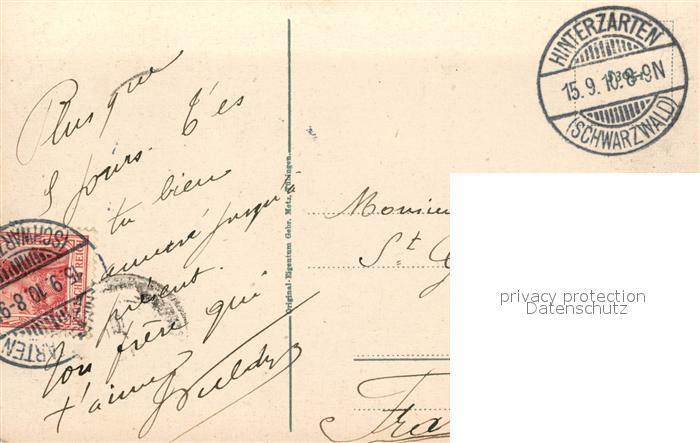 Plus que
5 jours. T'es
tu bien
amusé jusqu'à
présent.
Ton frère qui
t'aime
Original-Eigentum Gebr. Metz, Tübingen.
HINTERZARTEN
15.9.10.8-9N
(SCHWARZWALD)
Monsieu
St
Fra
privacy protection
Datenschutz
(SCHWAR
15.9.10.8-9
ARTEN
REICH